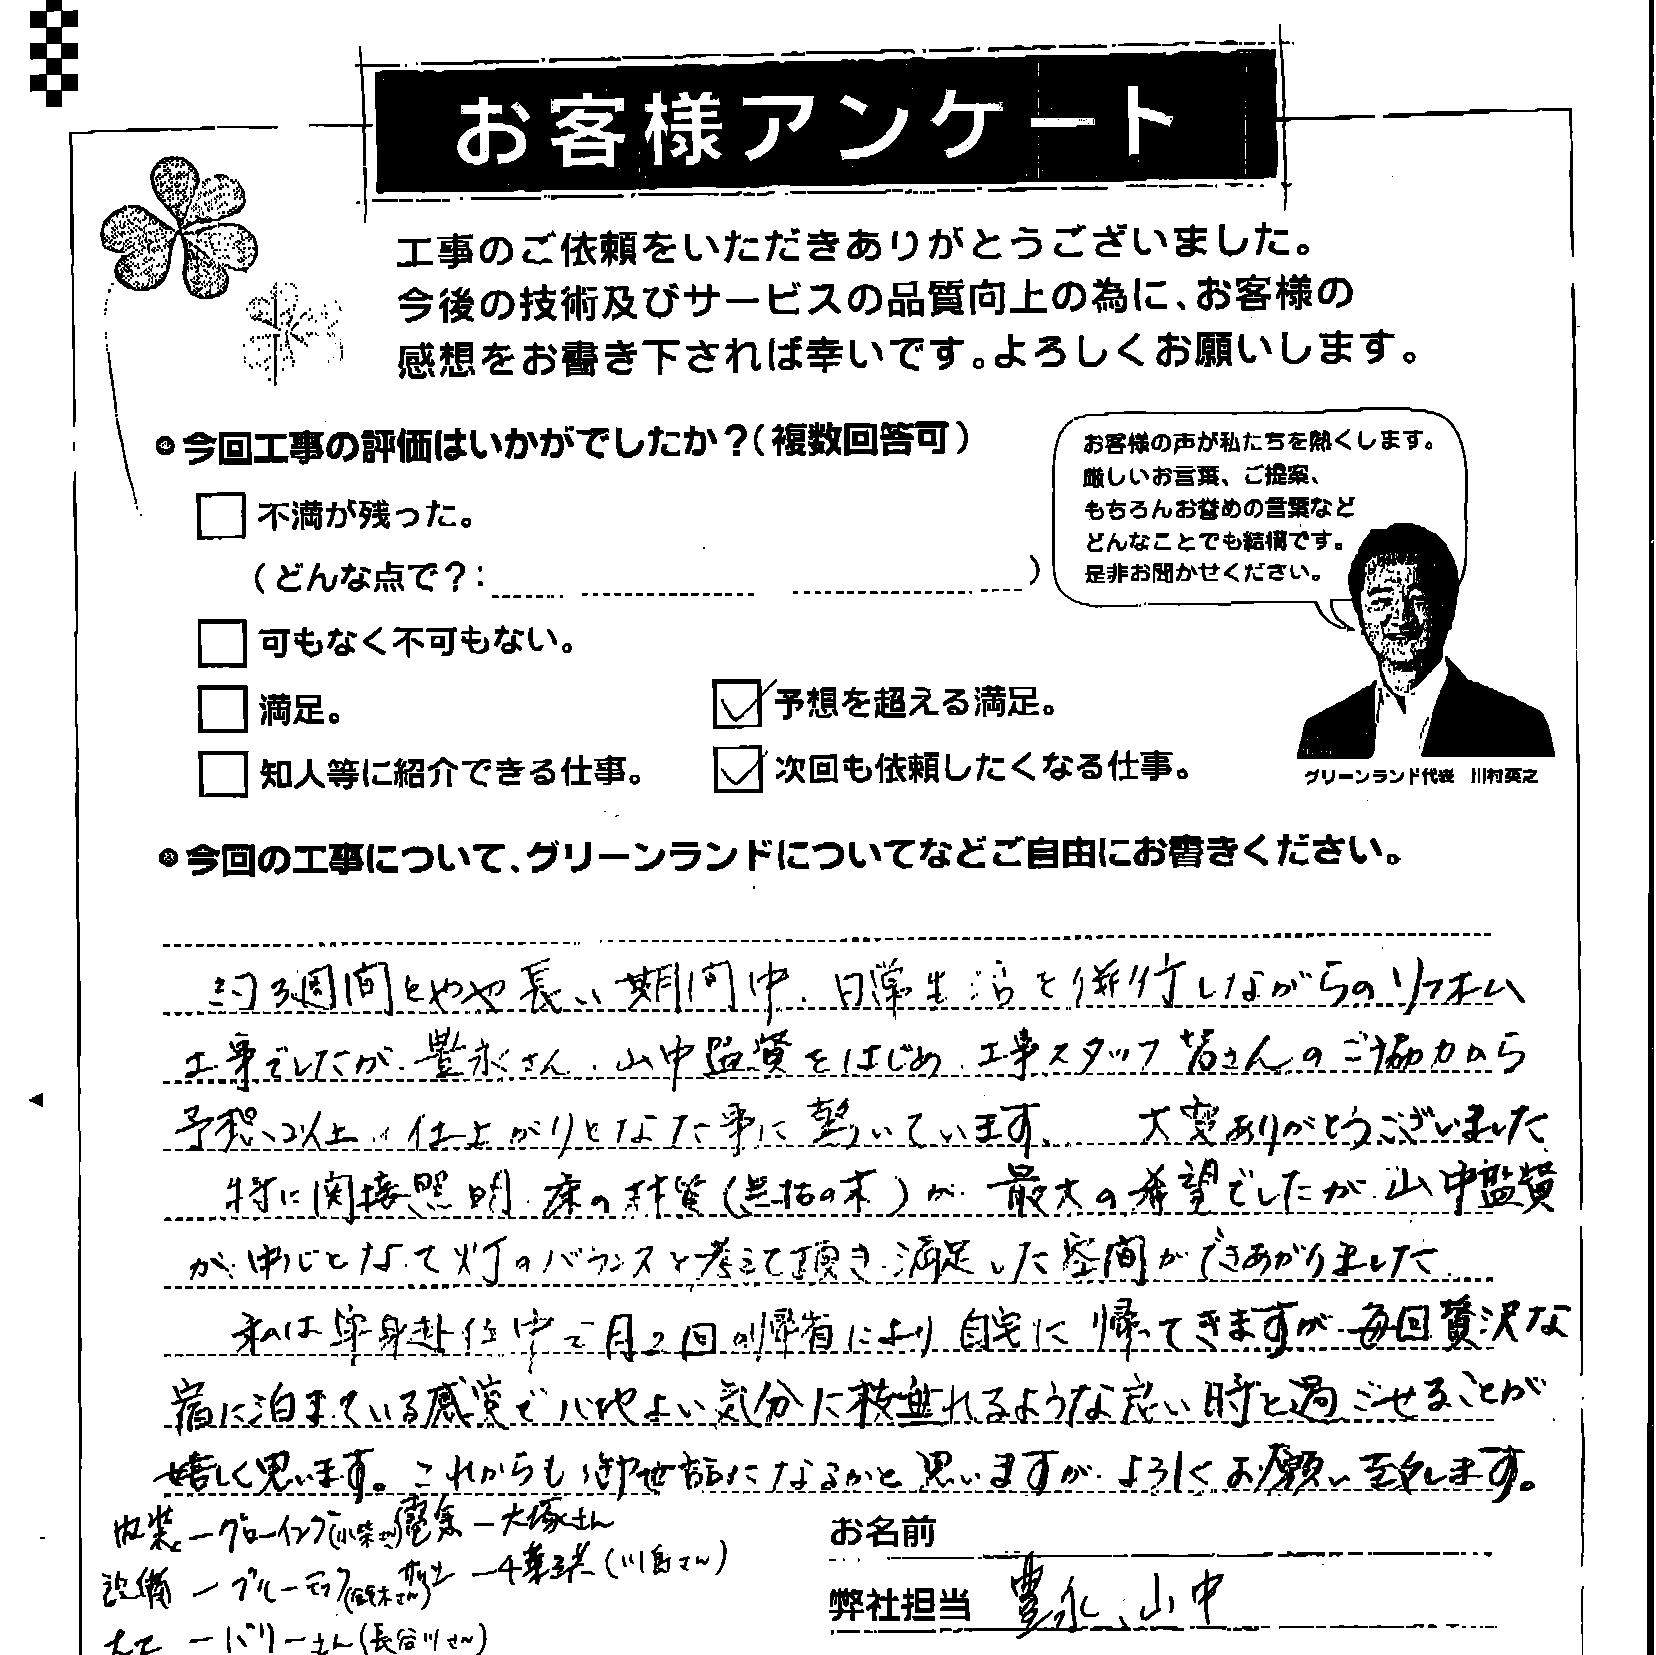 お客様アンケート
工事のご依頼をいただきありがとうございました。
今後の技術及びサービスの品質向上の為に、お客様の
感想をお書き下されば幸いです。よろしくお願いします。
今回工事の評価はいかがでしたか？（複数回答可）
不満が残った。
（どんな点で？：　　　）
可もなく不可もない。
満足。
予想を超える満足。
知人等に紹介できる仕事。
次回も依頼したくなる仕事。
お客様の声が私たちを熱くします。
厳しいお言葉、ご提案、
もちろんお誉めの言葉など
どんなことでも結構です。
是非お聞かせください。
グリーンランド代表　川村英之
今回の工事について、グリーンランドについてなどご自由にお書きください。
約3週間とやや長い期間中、日常生活と併行しながらのリフォーム
工事でしたが、豊永さん、山中監督をはじめ、工事スタッフ皆さんのご協力から
予想以上の仕上がりとなった事に驚いています。大変ありがとうございました
特に間接照明、床の材質（無垢の木）が、最大の希望でしたが、山中監督
が、中心となって灯のバランスを考えて頂き、満足した空間ができあがりました
私は単身赴任中で月2回の帰省により自宅に帰ってきますが、毎回贅沢な
宿に泊まている感覚で心地よい気分に なれるような良い時を過ごせることが
嬉しく思います。これからも御世話になるかと思いますが、よろしくお願い致します。
内装 ― グローイング（小柴さん）
電気 ― 大塚さん
設備 ― ブルーモア（鈴木さん）
サッシ ― 千葉 （川島さん）
大工 ― バリーさん（長谷川さん）
お名前
弊社担当　豊永、山中